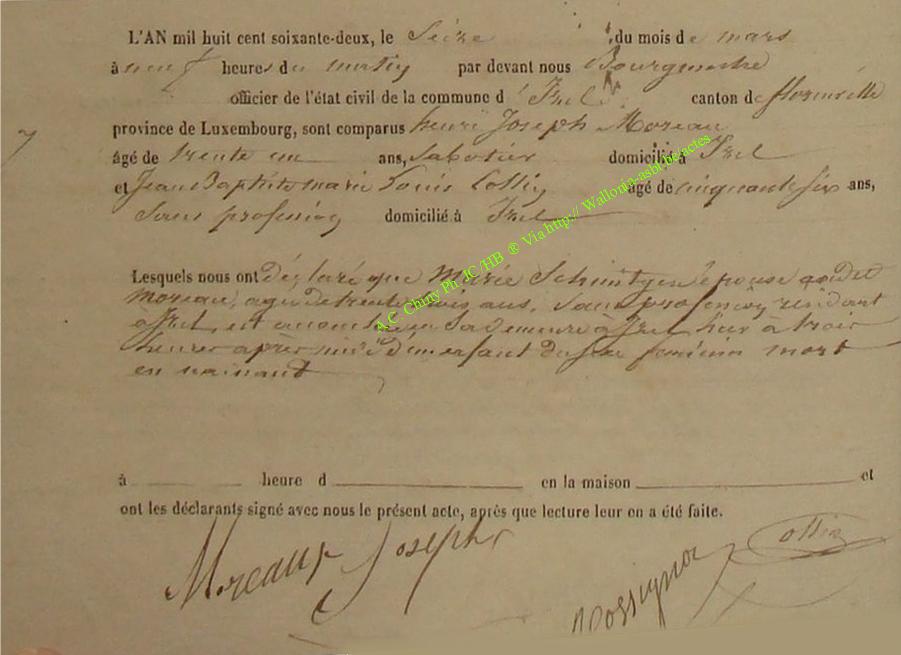 L'AN mil huit cent soixante-deux, le Seize du mois de mars
à neuf heures du matin par devant nous Bourgmestre
officier de l'état civil de la commune d'Izel canton de florenville
province de Luxembourg, sont comparus henri Joseph Moreau
7
âgé de trente un ans, Sabotier domicilié à Izel
et Jean Baptiste marie Louis Collin âgé de cinquante six ans,
Sans profession domicilié à Izel
Lesquels nous ont déclaré que Marie Schuntgen épouse dudit
moreau, agée de trente trois ans, Sans profession, residant
à Izel, est accouchée en Sa demeure à Izel, hier à trois
heures après midi d'un enfant du sexe feminin mort
en naissant
à heure d en la maison et
ont les déclarants signé avec nous le présent acte, après que lecture leur en a été faite.
Moreaux Joseph Rossignon Collin
A.C Chiny Ph JC/HB ® Via http:// Wallonia-asbl.be/actes